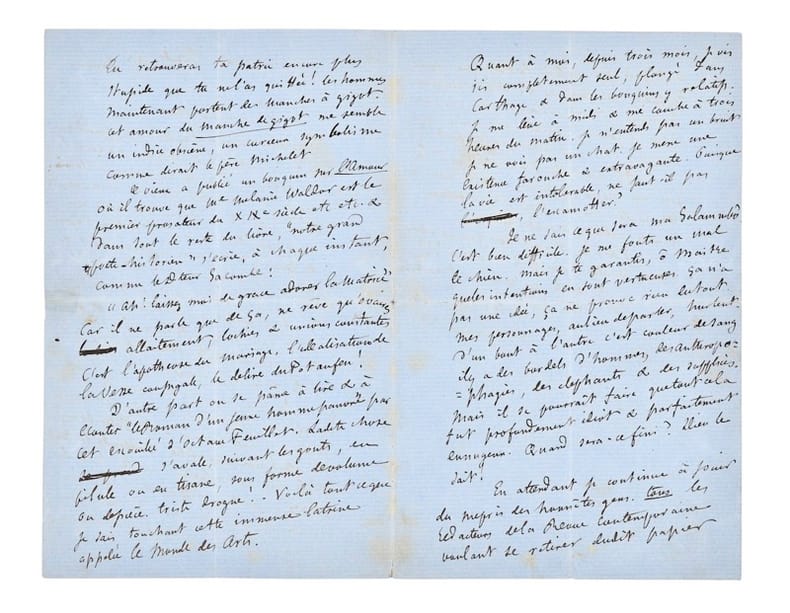 Tu retrouveras ta patrie encore plus
stupide que tu ne l'as quittée! les hommes
maintenant portent des manches à gigot.
cet amour du manche de gigot me semble
un indice obscène, un curieux symbolisme
comme dirait le père Michelet
le vieux a publié un bouquin sur l'Amour
où il trouve que Mme Mélanie Waldor est le
premier prosateur du XIXe siècle etc. etc. &
dans tout le reste du livre, "notre grand
poète-historien" s'écrie, à chaque instant,
comme le docteur Gacombe!
"Ah! laissez moi de grace adorer la Matrice"
Car il ne parle que de ça, ne rêve qu'ovaires
allaitement, lochies & unions constantes
C'est l'apothéose du mariage, l'idéalisation de
la Vesse conjugale, le délire du Pot au feu!
D'autre part on se pâme à lire & à
"le Roman d'un jeune homme pauvre" par
cet enculé d'Octave Feuillet. Ladite chose
s'avale, suivant les gouts, en
pilule ou en tisane, sous forme de volume
ou de pièce. triste drogue! - Voilà tout ce que
je sais touchant cette immense latrine
appelée le Monde des Arts.
Quant à moi, depuis trois mois, je vis
ici complètement seul, plongé dans
Carthage & dans les bouquins y relatifs.
je me lève à midi & me couche à trois
heures du matin. je n'entends pas un bruit
je ne vois pas un chat. je mène une
existence farouche & extravagante. Puisque
la vie est intolérable, ne faut-il pas
l'escamotter?
Je ne sais ce que sera ma Salammbô.
C'est bien difficile. Je me fouts un mal
de chien. Mais je te garantis, ô Maître
que les intentions en sont vertueuses. Ça n'a
pas une idée, ça ne prouve rien du tout.
mes personnages, au lieu de parler, hurlent.
D'un bout à l'autre c'est couleur de sang.
il y a des bordels d'hommes, des anthropo=
=phagies, des elephants & des supplices.
Mais il se pourrait faire que tout cela
fut profondément idiot & parfaitement
ennuyeux. Quand sera-ce fini? Dieu le
sait!
En attendant je continue à jouir
du mépris des honnêtes gens. tous les
rédacteurs de la Revue Contemporaine
voulant se retirer dudit papier